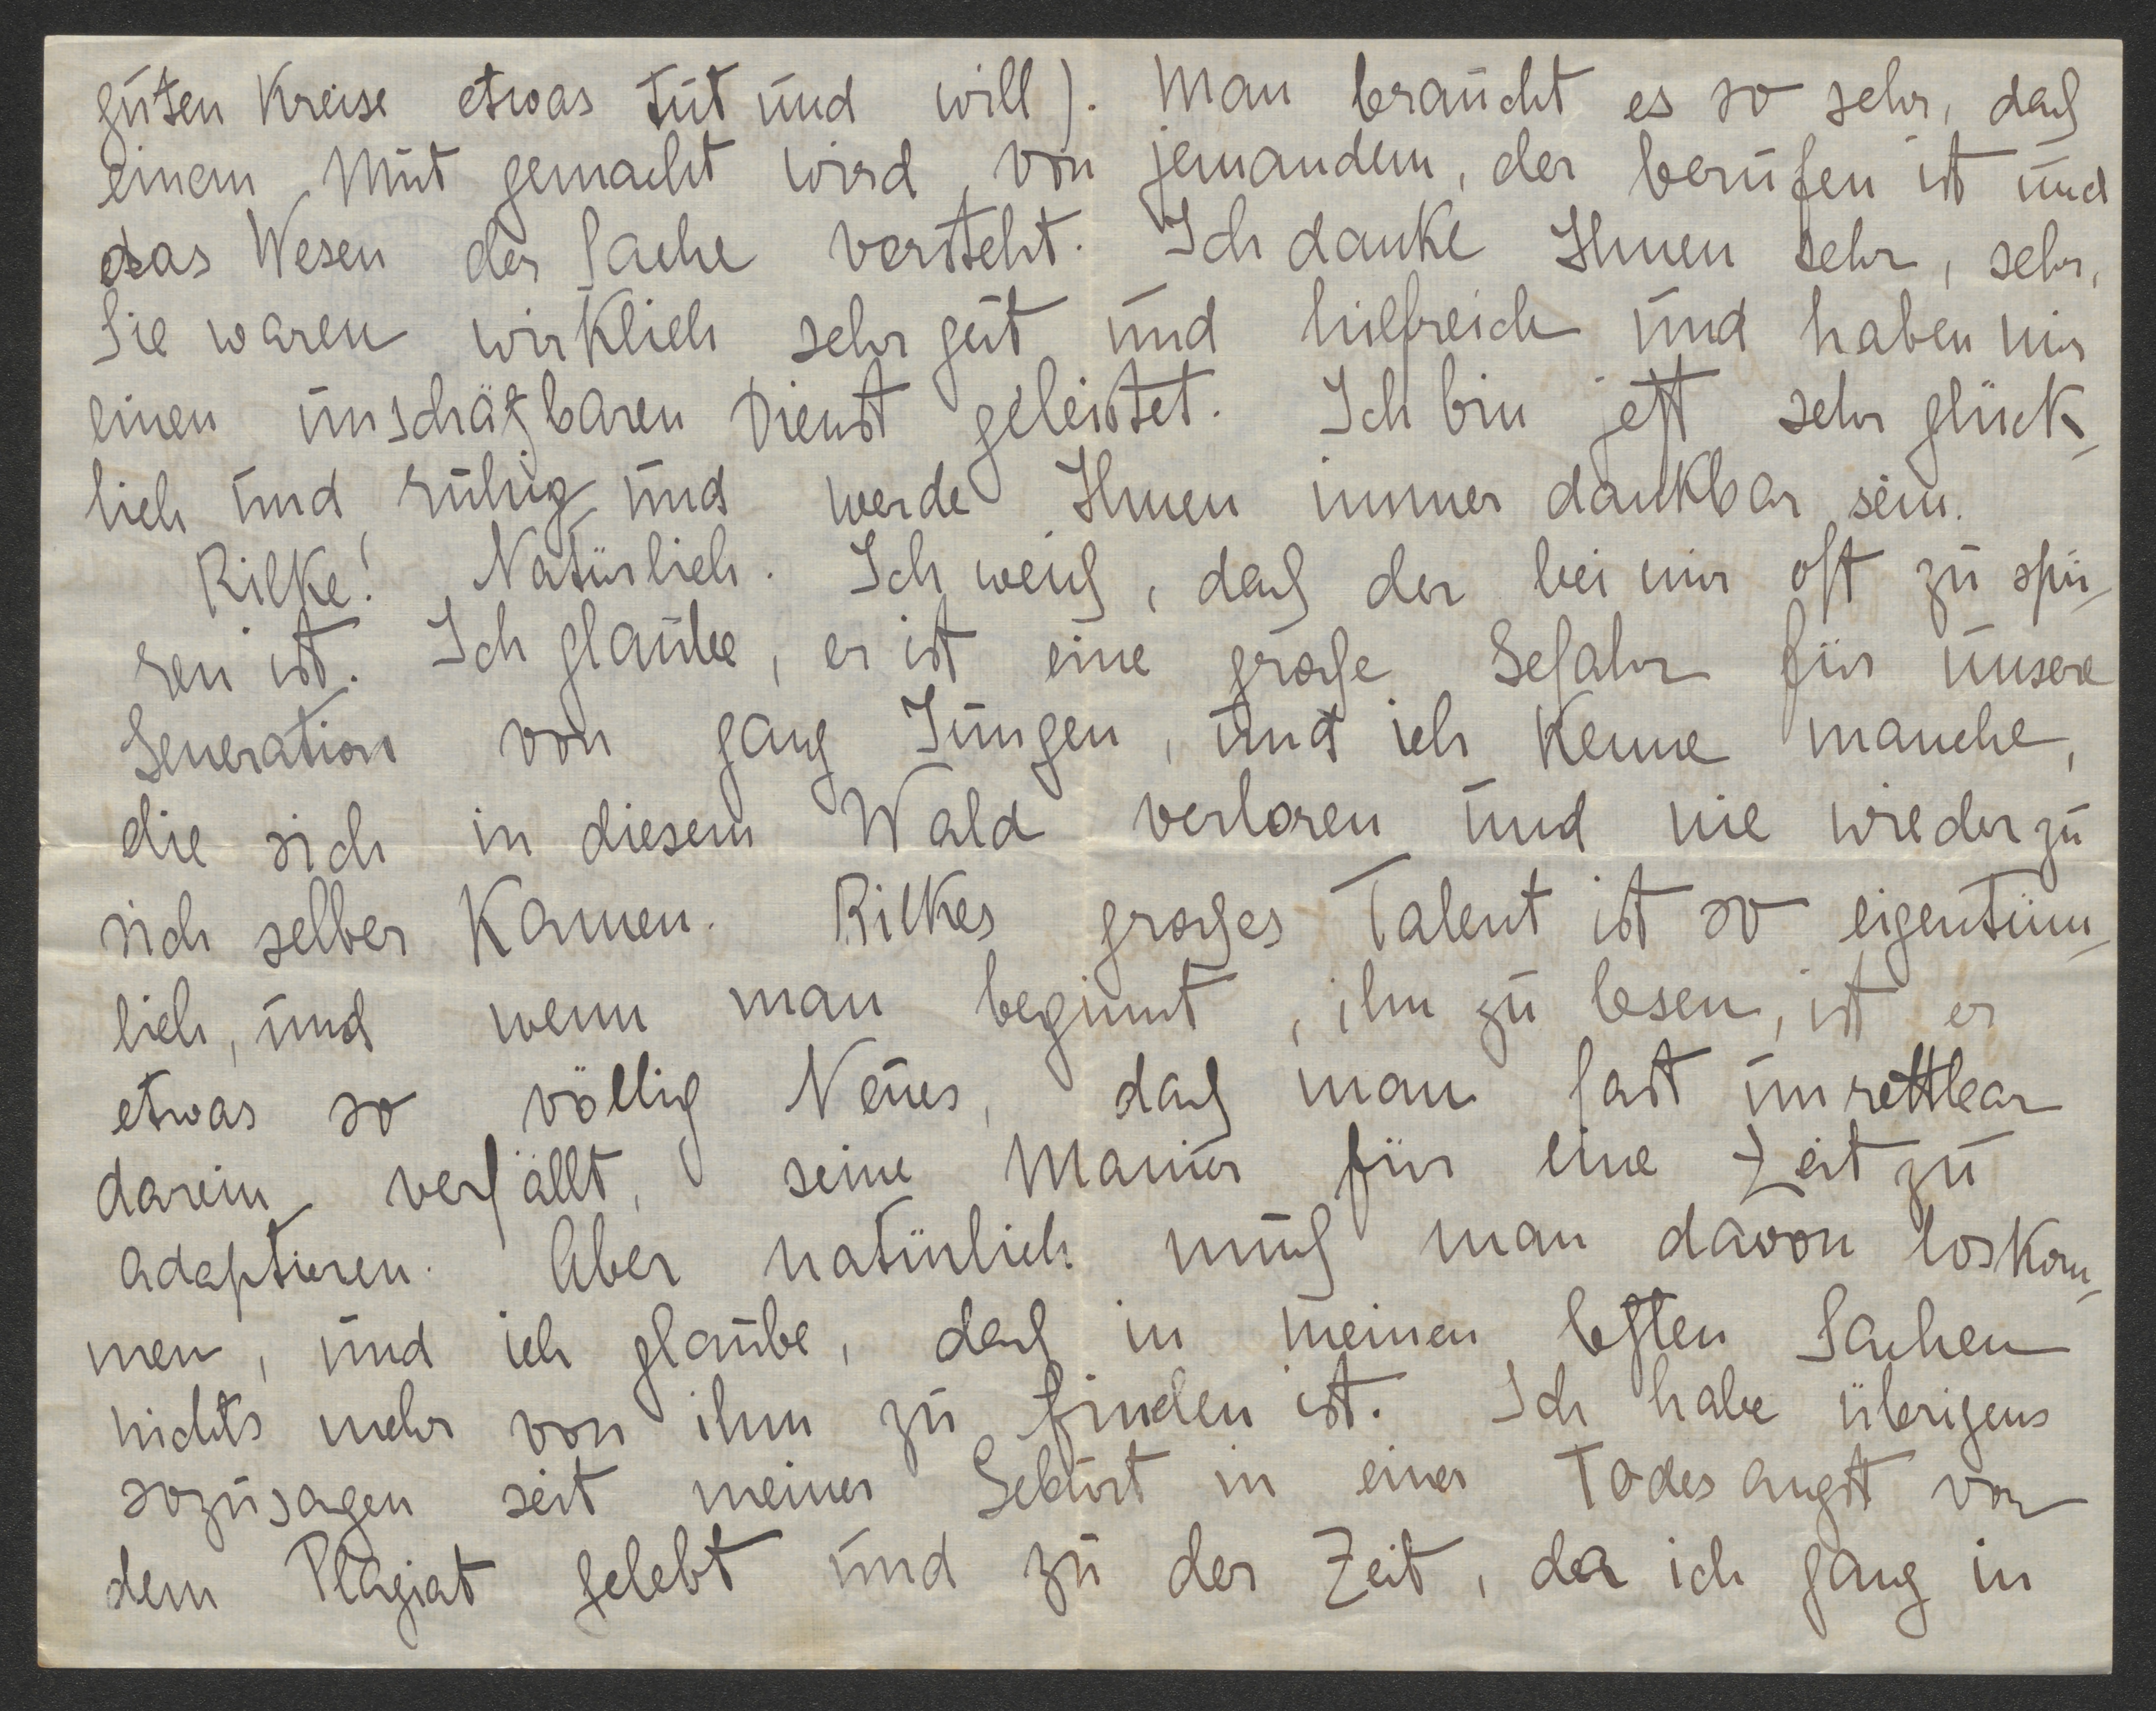 guten Kreise etwas tut und will). Man braucht es so sehr, daß
einem Mut gemacht wird von jemandem, der berufen ist und
das Wesen der Sache versteht. Ich danke Ihnen sehr, sehr,
Sie waren wirklich sehr gut und hilfreich und haben mir
einen unschätzbaren Dienst geleistet. Ich bin jetzt sehr glück-
lich und ruhig und werde Ihnen immer dankbar sein.
Rilke! Natürlich. Ich weiß, daß der bei mir oft zu spü-
ren ist. Ich glaube, er ist eine große Gefahr für unsere
Generation von ganz Jungen, und ich kenne manche,
die sich in diesem Wald verloren und nie wieder zu
sich selber kamen. Rilkes großes Talent ist so eigentüm-
lich, und wenn man beginnt, ihn zu lesen, ist er
etwas so völlig Neues, daß man fast unrettbar
darein verfällt, seine Manier für eine Zeit zu
adaptieren. Aber natürlich muß man davon loskom-
men, und ich glaube, daß in meinen letzten Sachen
nichts mehr von ihm zu finden ist. Ich habe übrigens
sozusagen seit meiner Geburt in einer Todesangst vor
dem Plagiat gelebt und zu der Zeit, da ich ganz in